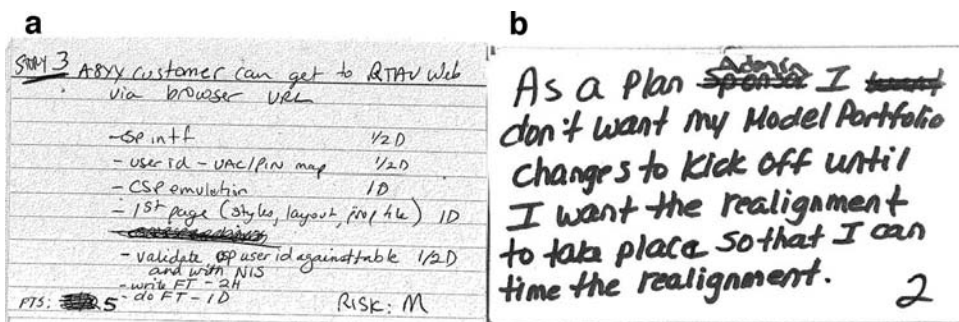 a
STORY 3 A8YX customer can get to QTAV Web
via browser URL
- SP intf 1/2 D
- user id - UAC/PIN map 1/2 D
- CSP emulation 1D
- 1st page (styles, layout, prop file) 1D
- validate user id against table 1/2 D
and with NIS
- write FT - 2H
- do FT - 1D
PTS: 5 RISK: M
b
As a Plan Admin I
don't want my Model Portfolio
changes to kick off until
I want the realignment
to take place so that I can
time the realignment.
2